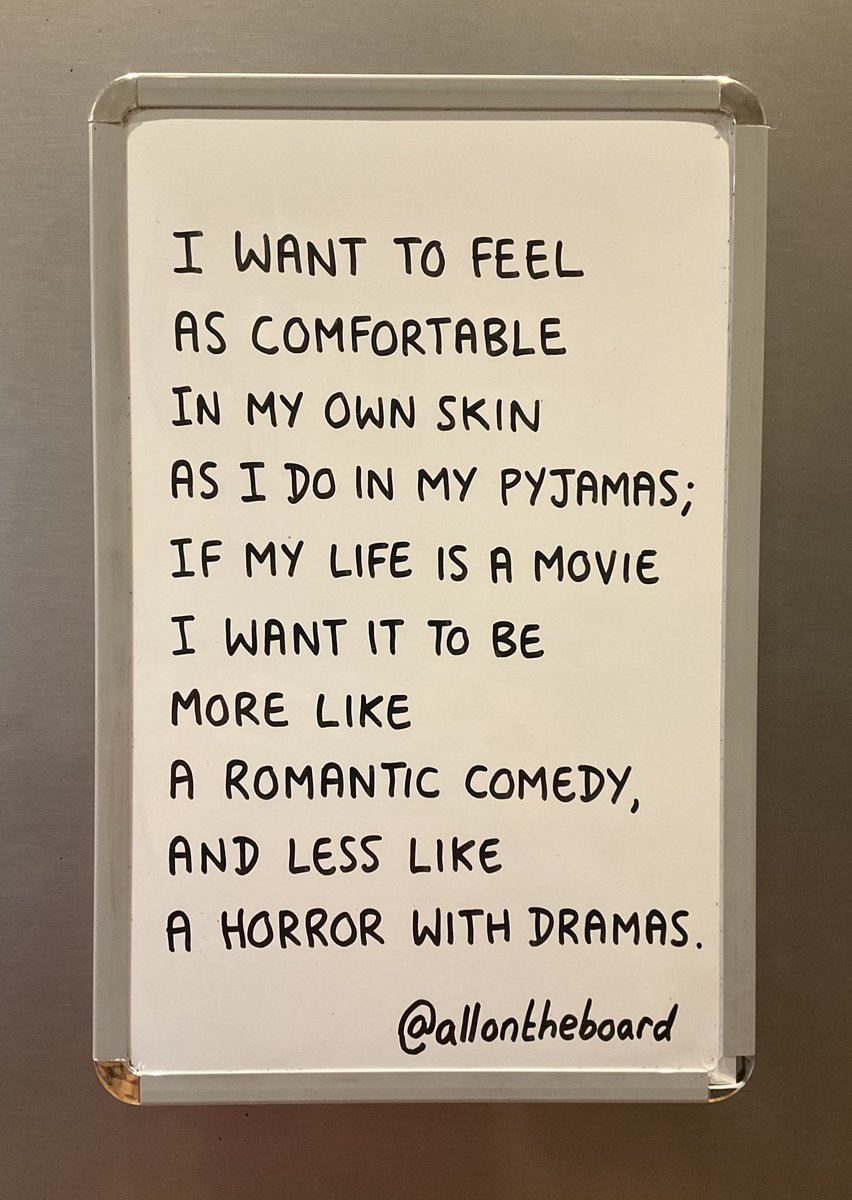 I WANT TO FEEL
AS COMFORTABLE
IN MY OWN SKIN
AS I DO IN MY PYJAMAS;
IF MY LIFE IS A MOVIE
I WANT IT TO BE
MORE LIKE
A ROMANTIC COMEDY,
AND LESS LIKE
A HORROR WITH DRAMAS.
@allontheboard